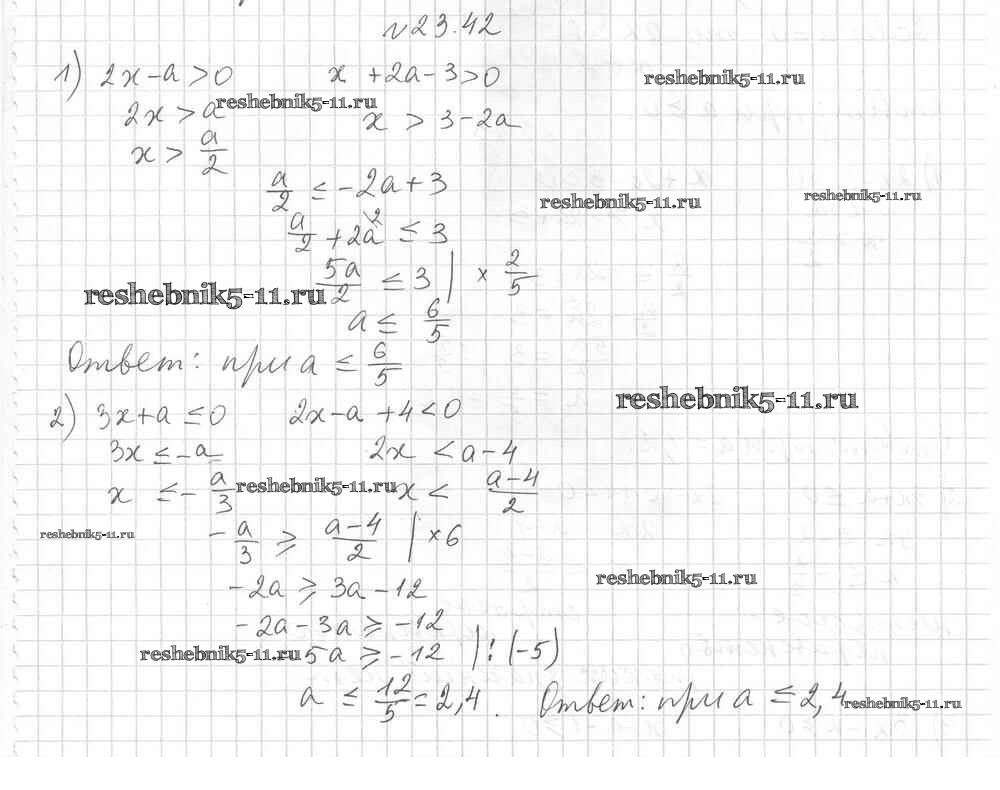 №23.42
1) 2x-a>0 x+2a-3>0
reshebnik5-11.ru
2x>a reshebnik5-11.ru x>3-2a
x> a/2
a/2 ≤ -2a+3
reshebnik5-11.ru reshebnik5-11.ru
a/2 + 2a^2 ≤ 3
5a/2 ≤ 3 | × 2/5
reshebnik5-11.ru
a ≤ 6/5
Ответ: при a ≤ 6/5
reshebnik5-11.ru
2) 3x+a ≤0 2x-a+4<0
3x ≤ -a 2x < a-4
x ≤ - a/3 reshebnik5-11.ru x < (a-4)/2
reshebnik5-11.ru
- a/3 ≥ (a-4)/2 | ×6
reshebnik5-11.ru
-2a ≥ 3a-12
-2a-3a ≥ -12
reshebnik5-11.ru 5a ≥ -12 | : (-5)
a ≤ 12/5 = 2,4. Ответ: при a ≤ 2,4 reshebnik5-11.ru